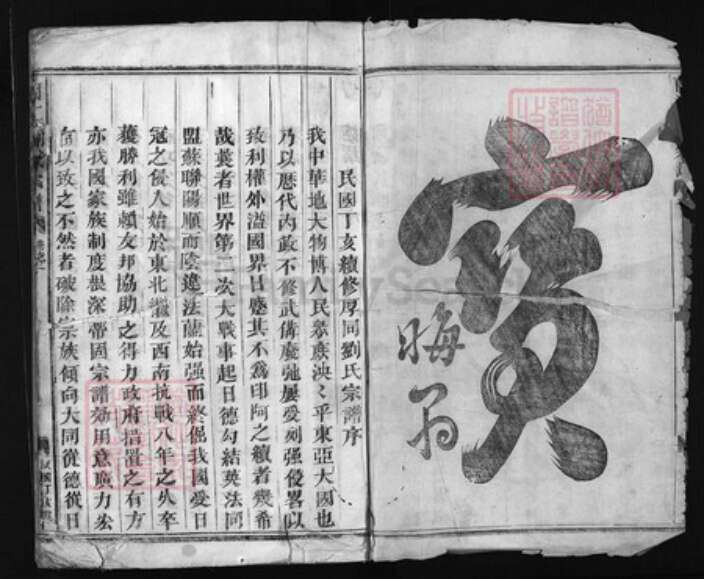 寶
晦翁
民國丁亥續修厚同劉氏宗譜序
我中華地大物博人民眾庶泱〻乎東亞大國也
乃以歷代內政不修武備廢弛屢受列强侵畧以
致利權外溢國界日蹙其不為印阿之續者幾希
哉冀者世界第二次大戰事起日德勾結英法同
盟蘇聯陽順而陰違法蘭始强而終倔我國受日
寇之侵入始於東北繼及西南抗戰八年之久卒
獲勝利雖賴友邦協助之得力政府措置之有方
亦我國家族制度根深蒂固宗譜効用意廣力宏
有以致之不然者破除宗族傾向大同從德從日